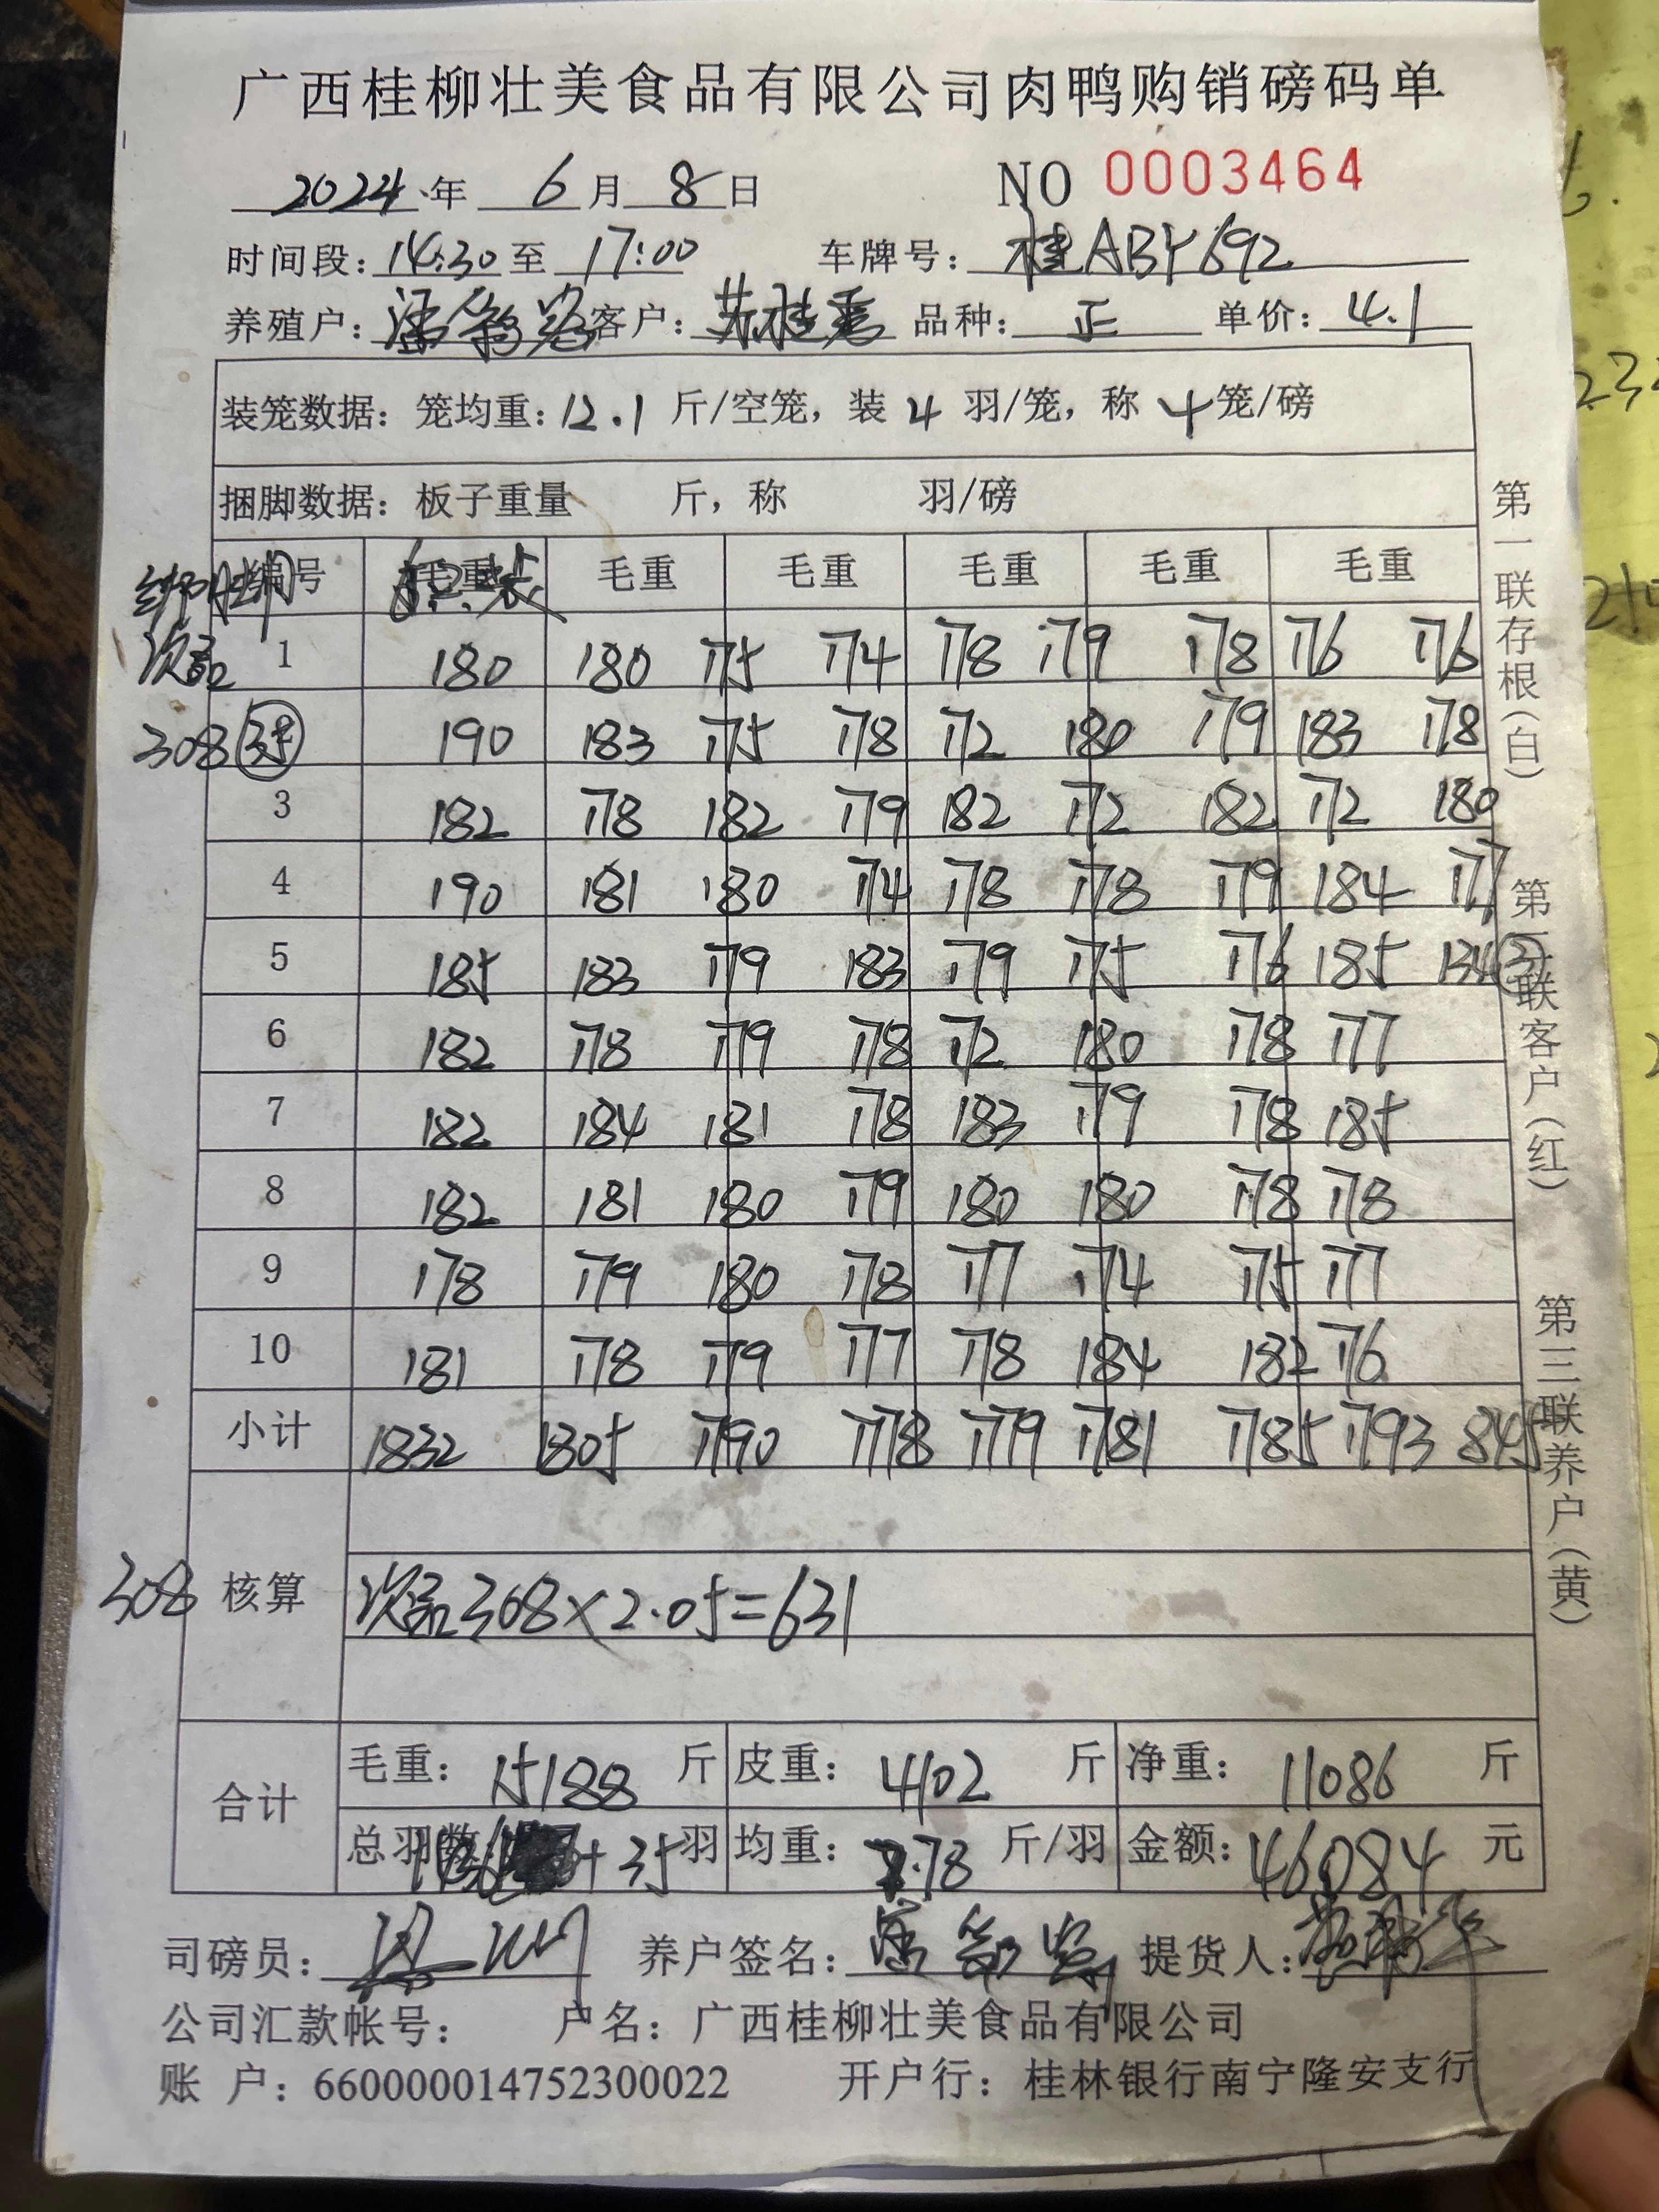 广西桂柳壮美食品有限公司肉鸭购销磅码单
2024年 6月 8日 NO 0003464
时间段：14:30 至 17:00 车牌号：桂ABY692
养殖户： 客户：苏桂秀 品种：正 单价：4.1
装笼数据：笼均重：12.1 斤/空笼，装 4 羽/笼，称 4 笼/磅
捆脚数据：板子重量 斤，称 羽/磅
编号 毛重 毛重 毛重 毛重 毛重 毛重
次品 1 180 180 175 174 178 179 178 176 176
308 35 190 183 175 178 172 180 179 183 178
3 182 178 182 179 182 172 182 172 180
4 190 181 180 174 178 178 179 184 177
5 185 183 179 183 179 175 176 185 134 3
6 182 178 179 178 172 180 178 177
7 182 184 181 178 183 179 178 185
8 182 181 180 179 180 180 178 178
9 178 179 180 178 177 174 175 177
10 181 178 179 177 178 184 182 176
小计 1832 1805 1790 1778 1779 1781 1785 1793 845
308 核算 次品308×2.05=631
合计 毛重：15188 斤 皮重：4102 斤 净重：11086 斤
总羽数 +35羽 均重：7.78 斤/羽 金额：46084 元
司磅员： 养户签名： 提货人：
公司汇款帐号： 户名：广西桂柳壮美食品有限公司
账 户：660000014752300022 开户行：桂林银行南宁隆安支行
第一联存根（白）
第二联客户（红）
第三联养户（黄）